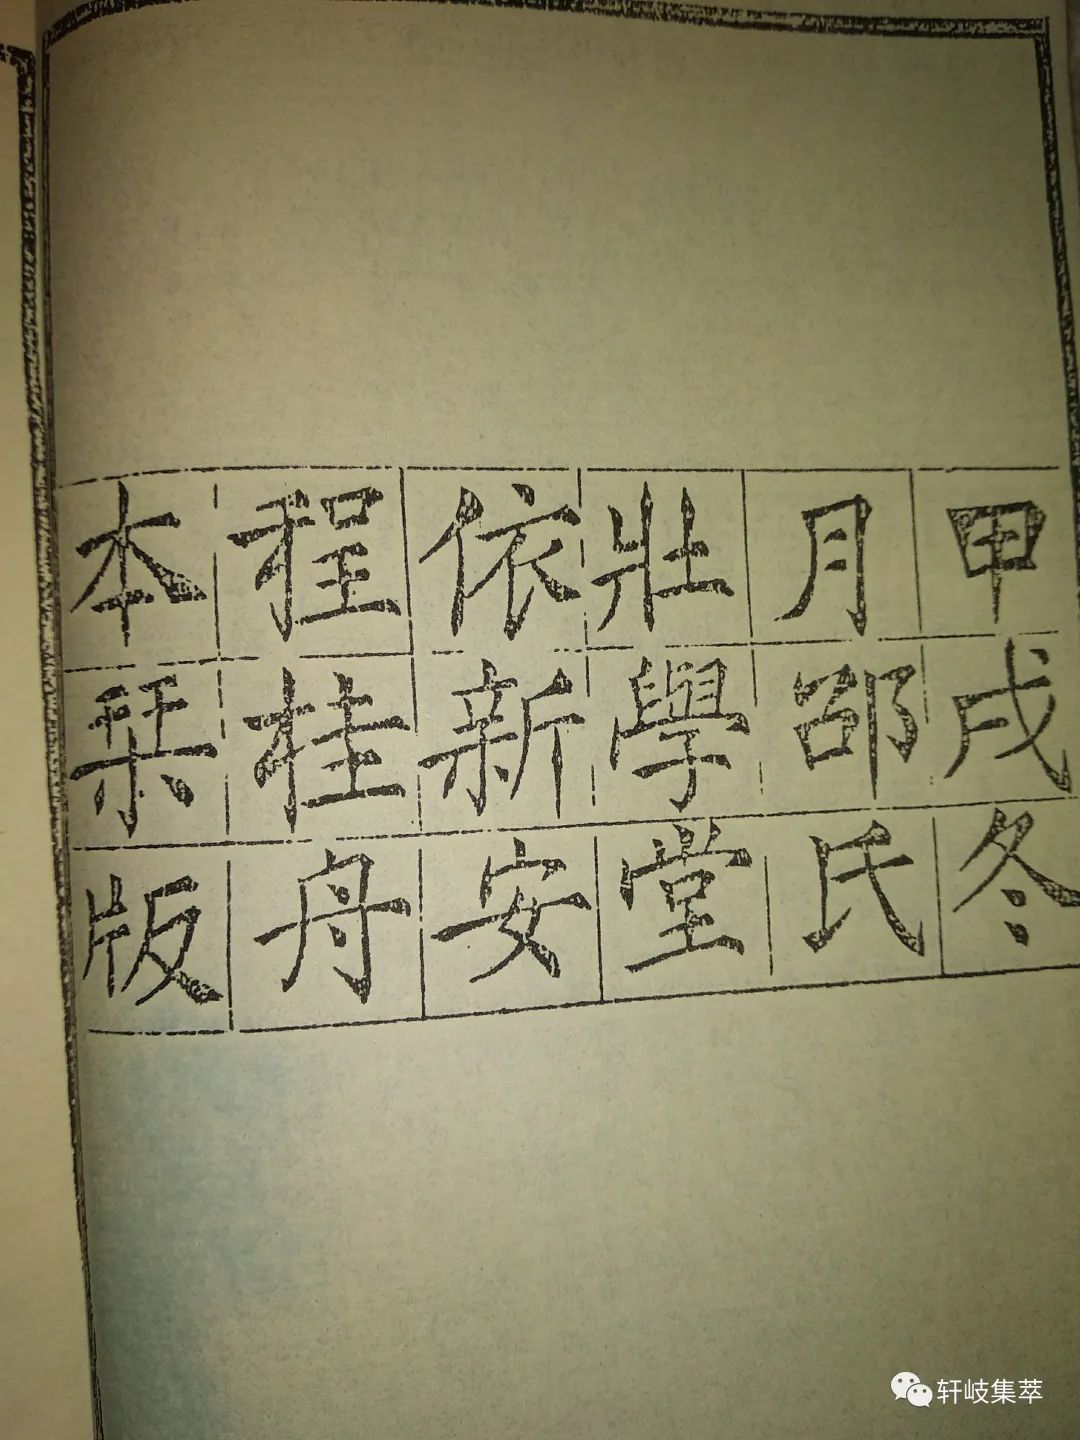 甲戌冬
月邵氏
壯學堂
依新安
程桂舟
本琹版
轩岐集萃